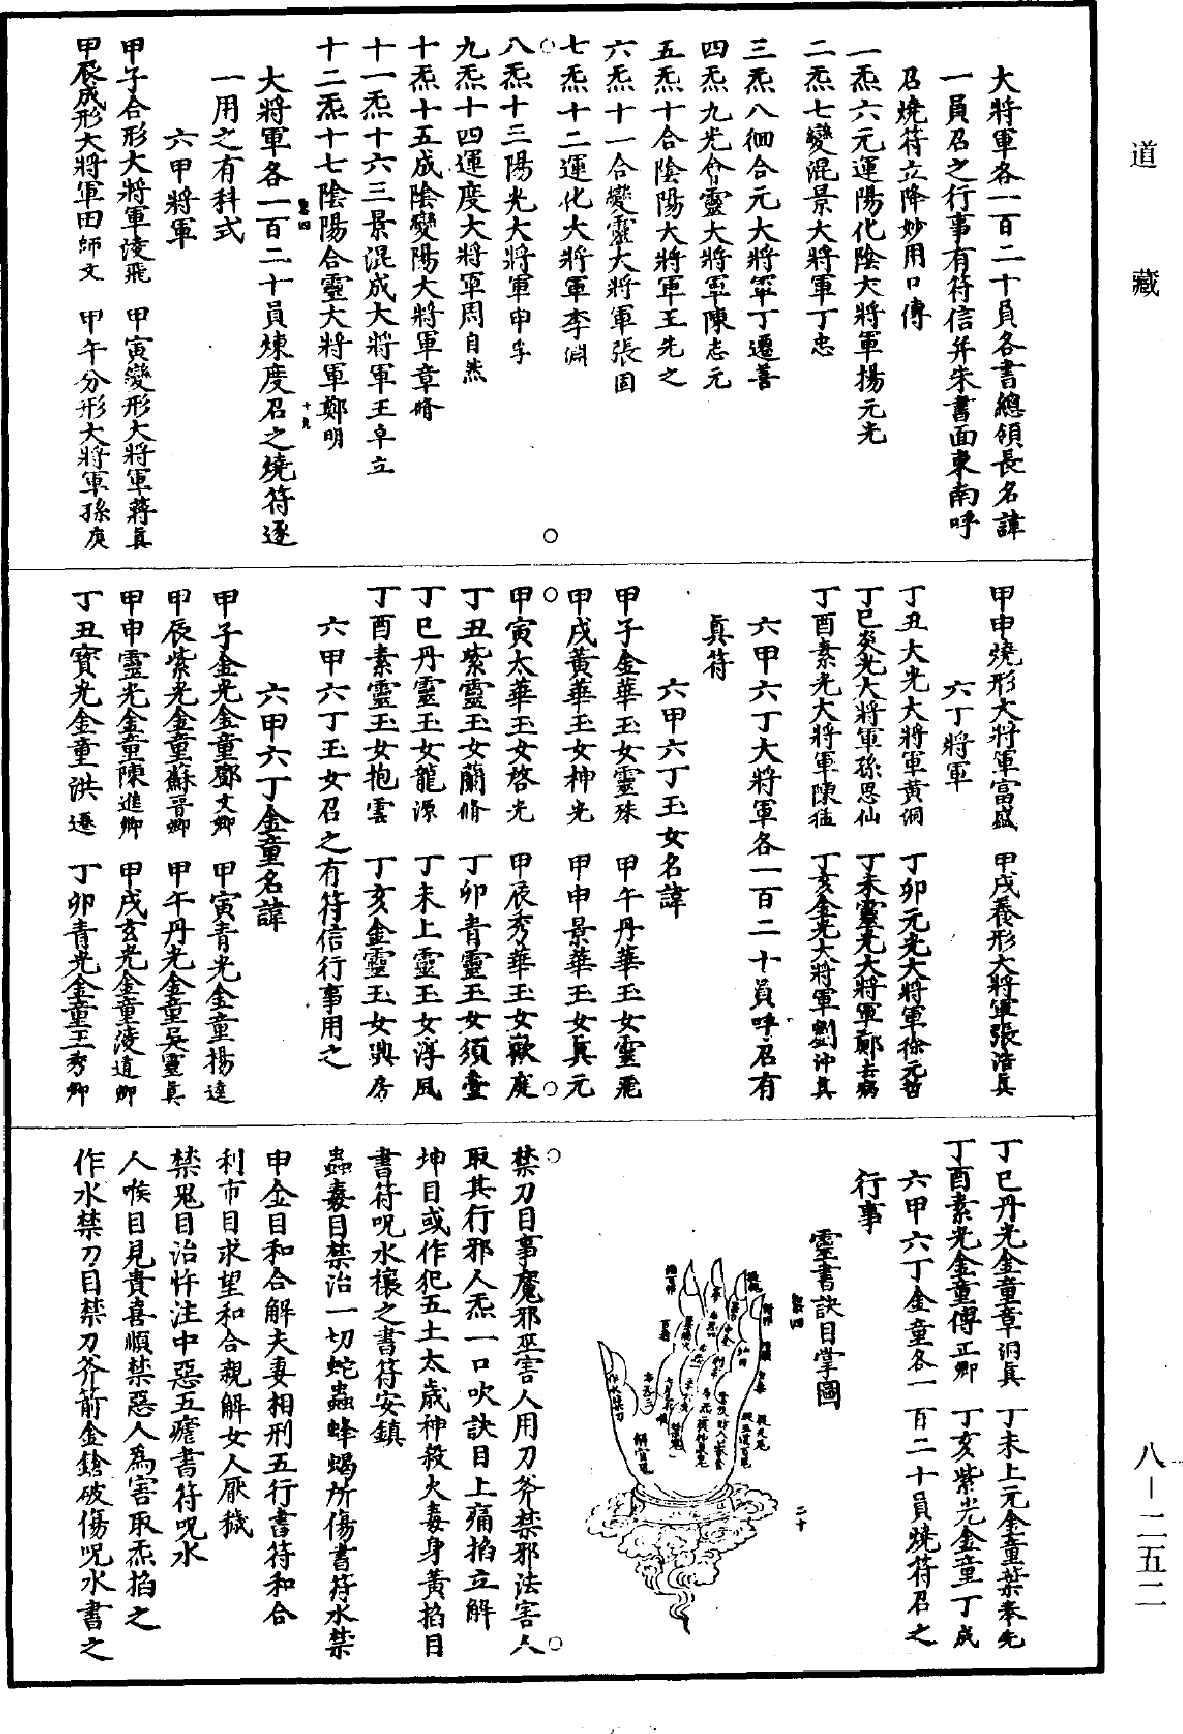 道藏
八—二五二
大將軍各一百二十員各書總領長名諱
一員召之行事有符信并朱書面東南呼
召燒符立降妙用口傳
一炁六元運陽化陰大將軍揚元光
二炁七變混景大將軍丁忠
三炁八徊合元大將軍丁遷善
四炁九光會靈大將軍陳志元
五炁十合陰陽大將軍王先之
六炁十一合變靈大將軍張固
七炁十二運化大將軍李淵
八炁十三陽光大將軍申孚
九炁十四運度大將軍周自然
十炁十五成陰變陽大將軍章脩
十一炁十六三景混成大將軍王卓立
十二炁十七陰陽合靈大將軍鄭明
大將軍各一百二十員煉度召之燒符逐
一用之有科式
六甲將軍
甲子合形大將軍淩飛 甲寅變形大將軍蔣真
甲辰成形大將軍田師文 甲午分形大將軍孫庚
甲申燒形大將軍富盛 甲戌養形大將軍張浩真
六丁將軍
丁丑大光大將軍黃洞 丁卯元光大將軍徐元哲
丁巳炎光大將軍孫思仙 丁未靈光大將軍鄭去病
丁酉素光大將軍陳猛 丁亥金光大將軍劉沖真
六甲六丁大將軍各一百二十員呼召有
真符
六甲六丁玉女名諱
甲子金華玉女靈珠 甲午丹華玉女靈飛
甲戌黃華玉女神光 甲申景華玉女真元
甲寅太華玉女啓光 甲辰秀華玉女歡庭
丁丑紫靈玉女蘭脩 丁卯青靈玉女須臺
丁巳丹靈玉女龍源 丁未上靈玉女淳風
丁酉素靈玉女抱雲 丁亥金靈玉女興房
六甲六丁玉女召之有符信行事用之
六甲六丁金童名諱
甲子金光金童鄧文卿 甲寅青光金童揚逵
甲辰紫光金童蘇晉卿 甲午丹光金童吳靈真
甲申靈光金童陳進卿 甲戌玄光金童淩道卿
丁丑寶光金童洪遷 丁卯青光金童王秀卿
丁巳丹光金童章洞真 丁未上元金童葉奉先
丁酉素光金童傅正卿 丁亥紫光金童丁成
六甲六丁金童各一百二十員燒符召之
行事
靈書訣目掌圖
二十
禁刀目事魔邪巫害人用刀斧禁邪法害人
取其行邪人炁一口吹訣目上痛掐立解
坤目或作犯五土太歲神殺火毒身黃掐目
書符呪水禳之書符安鎮
蟲毒目禁治一切蛇蟲蜂蝎所傷書符水禁
申金目和合解夫妻相刑五行書符和合
利市目求望和合親解女人厭穢
禁鬼目治忤注中惡五瘧書符呪水
人喉目見貴喜順禁惡人爲害取炁掐之
作水禁刀目禁刀斧箭金鎗破傷呪水書之